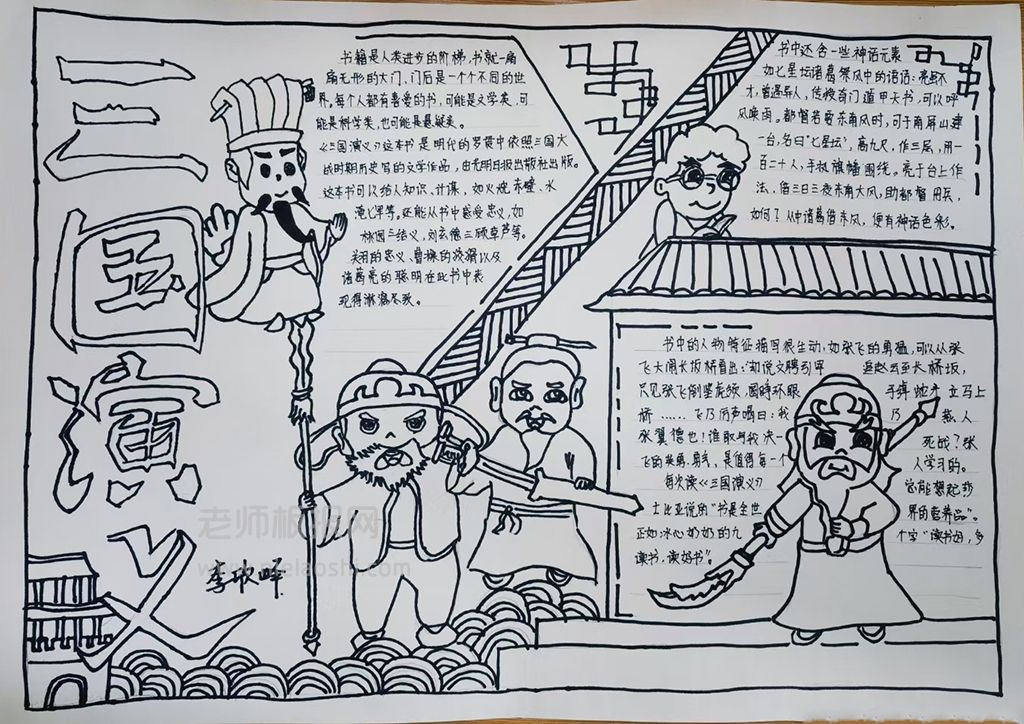 三国演义
书籍是人类进步的阶梯,书就一扇
扇无形的大门,门后是一个个不同的世
界。每个人都有喜爱的书,可能是文学类,可
能是科学类,也可能是悬疑类。
《三国演义》这本书是明代的罗贯中依照三国大
战时期历史写的文学作品,由光明日报出版社出版。
这本书可以给人知识、计谋,如火烧赤壁、水
淹七军等,还能从书中感受忠义,如
桃园三结义,刘玄德三顾草芦等。
关羽的忠义、曹操的狡猾以及
诸葛亮的聪明在此书中表
现得淋漓尽致。
书中还含一些神话元素
如七星坛诸葛祭风中的语话:亮虽不
才,曾遇异人,传授奇门遁甲天书,可以呼
风唤雨。都督若要东南风时,可于南屏山建
一台,名曰“七星坛”,高九尺,作三层,用一
百二十人,手执旗幡围绕。亮于台上作
法,借三日三夜东南大风,助都督用兵,
如何?从中诸葛借东风,便有神话色彩。
书中的人物特征描写很生动,如张飞的勇猛,可以从张
飞大闹长坂桥看出:“却说文聘引军 追赵云至长桥坂,
只见张飞倒竖虎须,圆睁环眼 手绰蛇矛 立马上
桥……飞乃厉声喝曰:我 乃 燕人
张翼德也!谁敢与我决一 死战?张
飞的英勇,勇气,是值得每一个 人学习的。
每次读《三国演义》 总能想起莎
士比亚说的“书是全世 界的营养品”。
正如冰心奶奶的九 个字“读书好,多
读书,读好书”。
老师板报网
www.pielaoshi.com